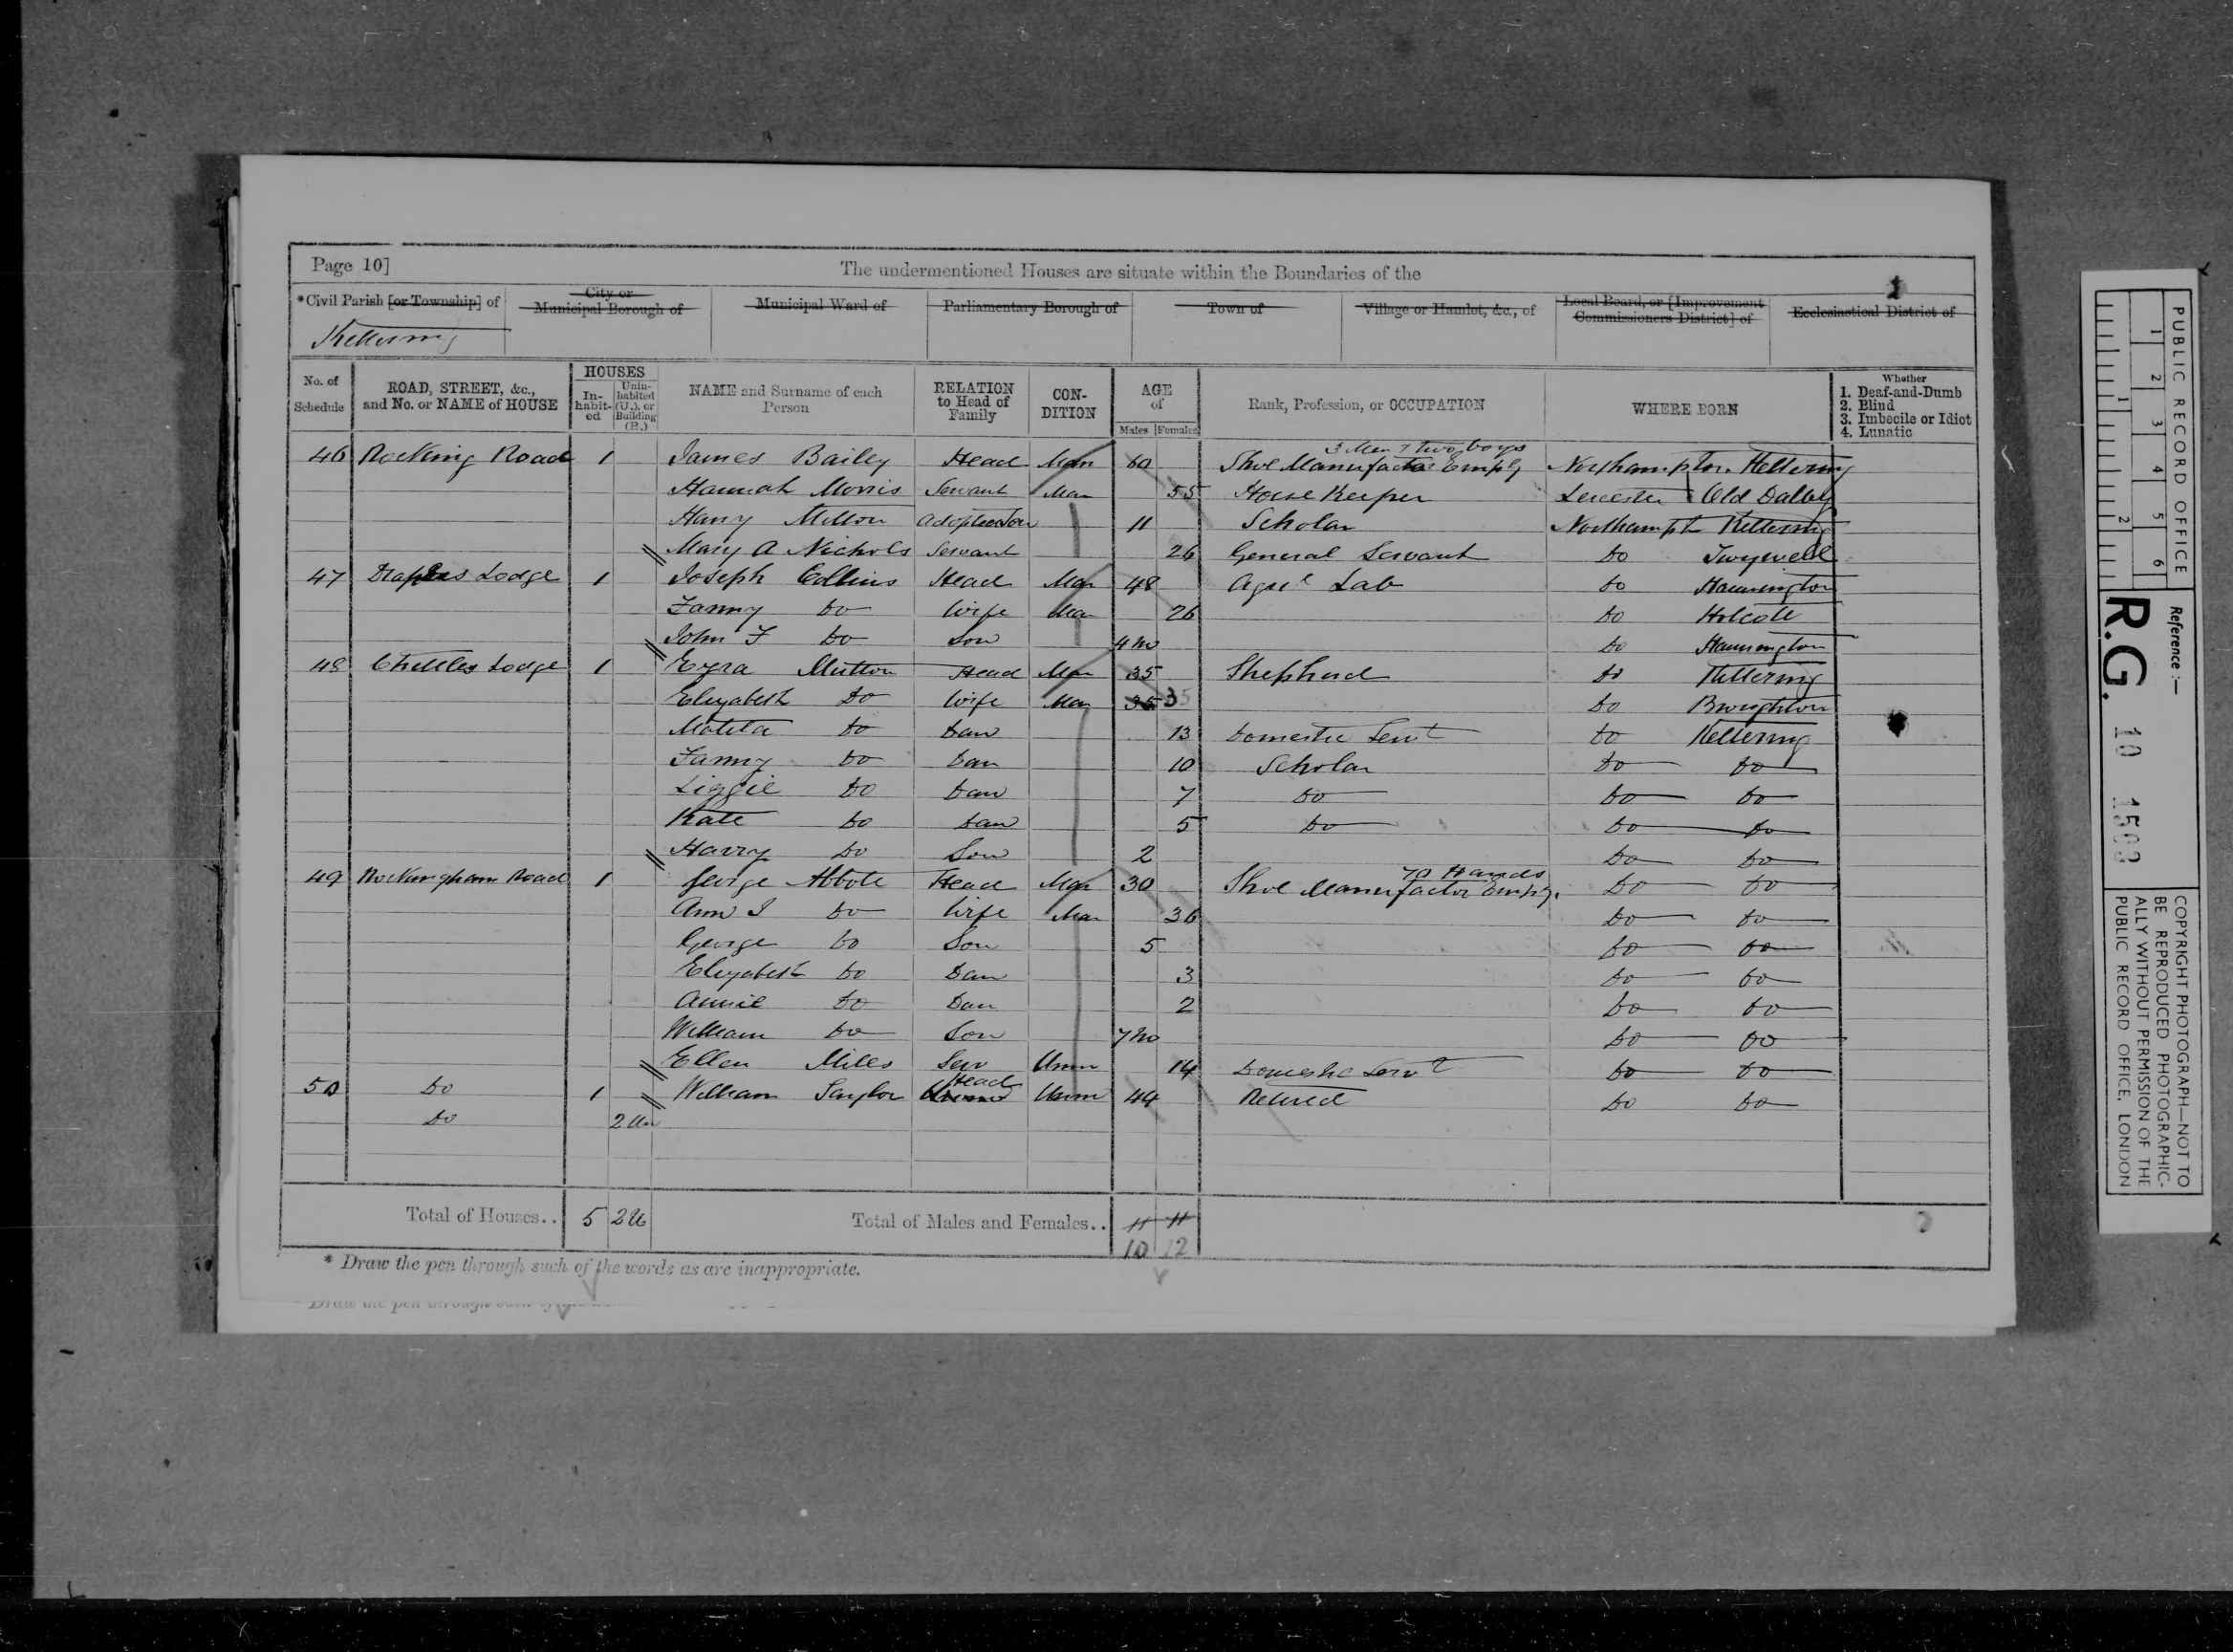 Page 10]
The undermentioned Houses are situate within the Boundaries of the
1
*Civil Parish [or Township] of
City or Municipal Borough of
Municipal Ward of
Parliamentary Borough of
Town of
Village or Hamlet, &c., of
Local Board, or [Improvement Commissioners District] of
Ecclesiastical District of
Kettering
No. of Schedule
ROAD, STREET, &c., and No. or NAME of HOUSE
HOUSES
In-habit-ed
Unin-habited (U.), or Building (B.)
NAME and Surname of each Person
RELATION to Head of Family
CON-DITION
AGE of
Males Females
Rank, Profession, or OCCUPATION
WHERE BORN
Whether
1. Deaf-and-Dumb
2. Blind
3. Imbecile or Idiot
4. Lunatic
3 Men & two boys
46 Rocking Road 1 James Bailey Head Mar 60 Shoe Manufactor Employ Northampton Kettering
Hannah Morris Servant Mar 55 House Keeper Leicester Old Dalby
Harry Milton Adopted Son 11 Scholar Northampt Kettering
Mary A Nichols Servant 26 General Servant Do Twywell
47 Lodge 1 Joseph Collins Head Mar 48 Agrl Lab Do Hannington
Fanny Do Wife Mar 26 Do Holcott
John F Do Son 4 Mo Do Hannington
48 Lodge 1 Ezra Mutton Head Mar 35 Shepherd Do Kettering
Elizabeth Do Wife Mar 35 35 Do Broughton
Matilda Do Daw 13 Domestic Servt Do Kettering
Fanny Do Daw 10 Scholar Do Do
Lizzie Do Daw 7 Do Do Do
Kate Do Daw 5 Do Do Do
Harry Do Son 2 Do Do
70 Hands
49 Rockingham Road 1 George Abbott Head Mar 30 Shoe Manufactor Employ. Do Do
Ann J Do Wife Mar 36 Do Do
George Do Son 5 Do Do
Elizabeth Do Daw 3 Do Do
Annie Do Daw 2 Do Do
William Do Son 7 Mo Do Do
Ellen Miles Serv Unm 14 Domestic Servt Do Do
50 Do 1 William Head Unm 44 Retired Do Do
Do 2 Un
Total of Houses.. 5 2 U Total of Males and Females.. 11 11
10 12
* Draw the pen through such of the words as are inappropriate.
PUBLIC RECORD OFFICE
1 2 3 4 5 6
1 2
Reference:—
R.G. 10 1503
COPYRIGHT PHOTOGRAPH—NOT TO
BE REPRODUCED PHOTOGRAPHIC-
ALLY WITHOUT PERMISSION OF THE
PUBLIC RECORD OFFICE, LONDON